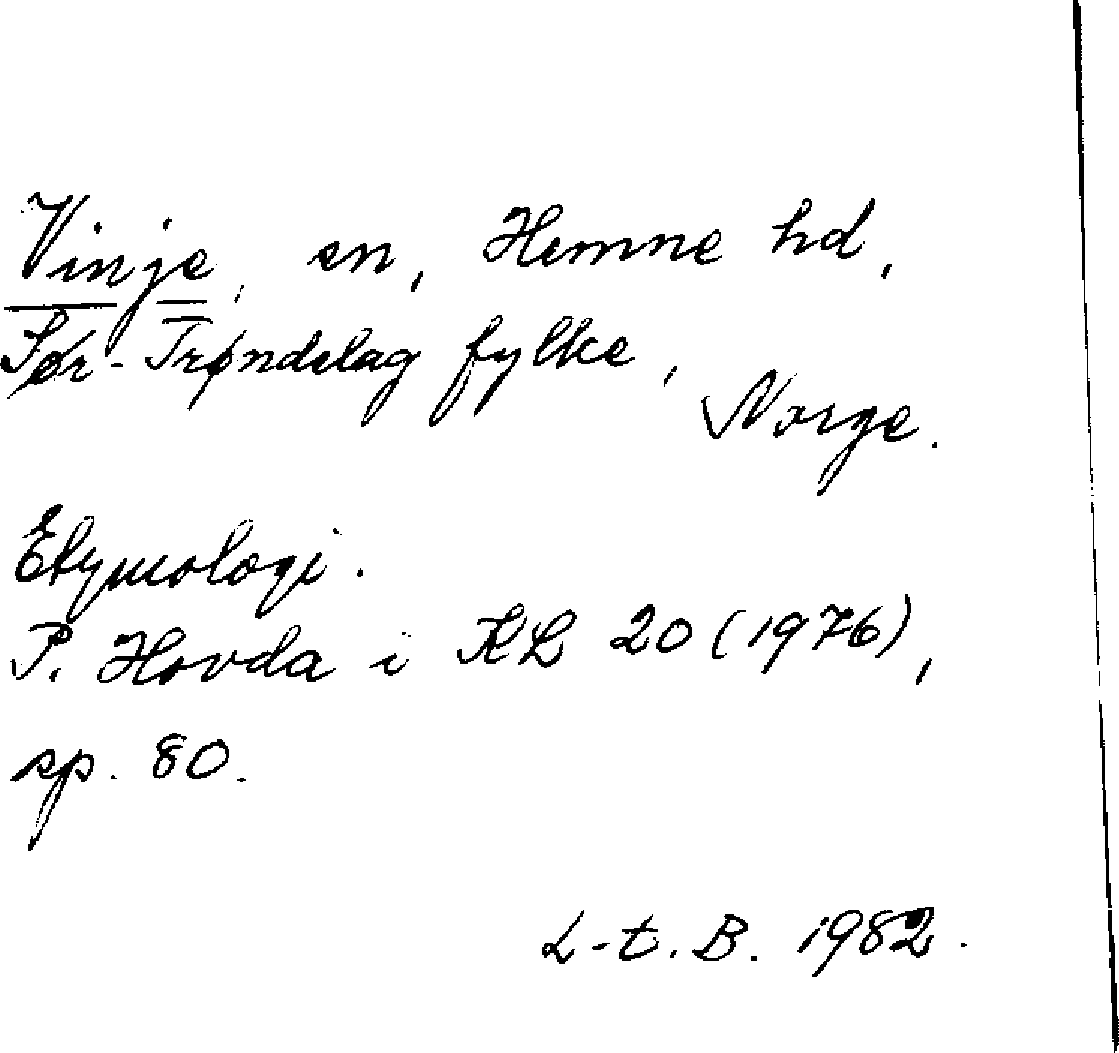 Vinje, sn, Hemne hd,
Sør-Trøndelag fylke,
Norge.
Etymologi.
P. Hovda i KL 20 (1976),
sp. 80.
L-t. B. 1982.